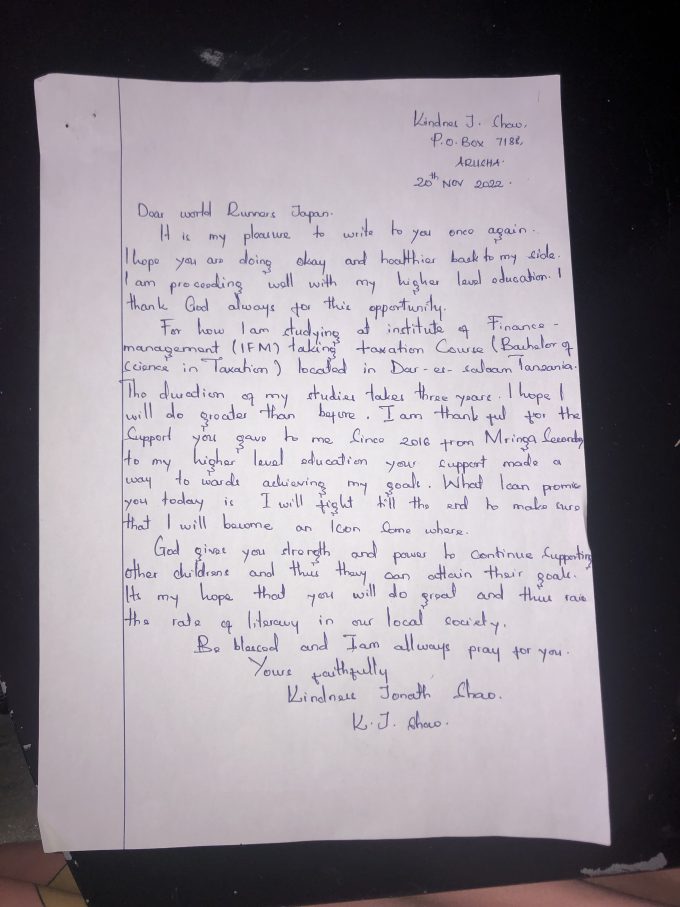 Kindnes J. Shao,
P.O. Box 7188,
ARUSHA.
20th NOV 2022.
Dear world Runners Japan.
It is my pleasure to write to you once again.
I hope you are doing okay and healthier back to my side.
I am proceeding well with my higher level education. I
thank God always for this opportunity.
For now I am studying at institute of Finance -
management (IFM) taking taxation Course (Bachelor of
science in Taxation) located in Dar-es-salaam Tanzania.
The duration of my studies takes three years. I hope I
will do greater than before. I am thank ful for the
Support you gave to me Since 2016 from Mringa Secondary
to my higher level education your support made a
way to wards achieving my goals. What I can promise
you today is I will fight till the end to make sure
that I will become an Icon Some where.
God gives you strength and power to continue Supporting
other childrens and thus they can attain their goals.
Its my hope that you will do great and thus raise
the rate of literacy in our local society.
Be blessed and I am allways pray for you.
Yours faithfully
Kindness Jonath Shao.
K. J. Shao.